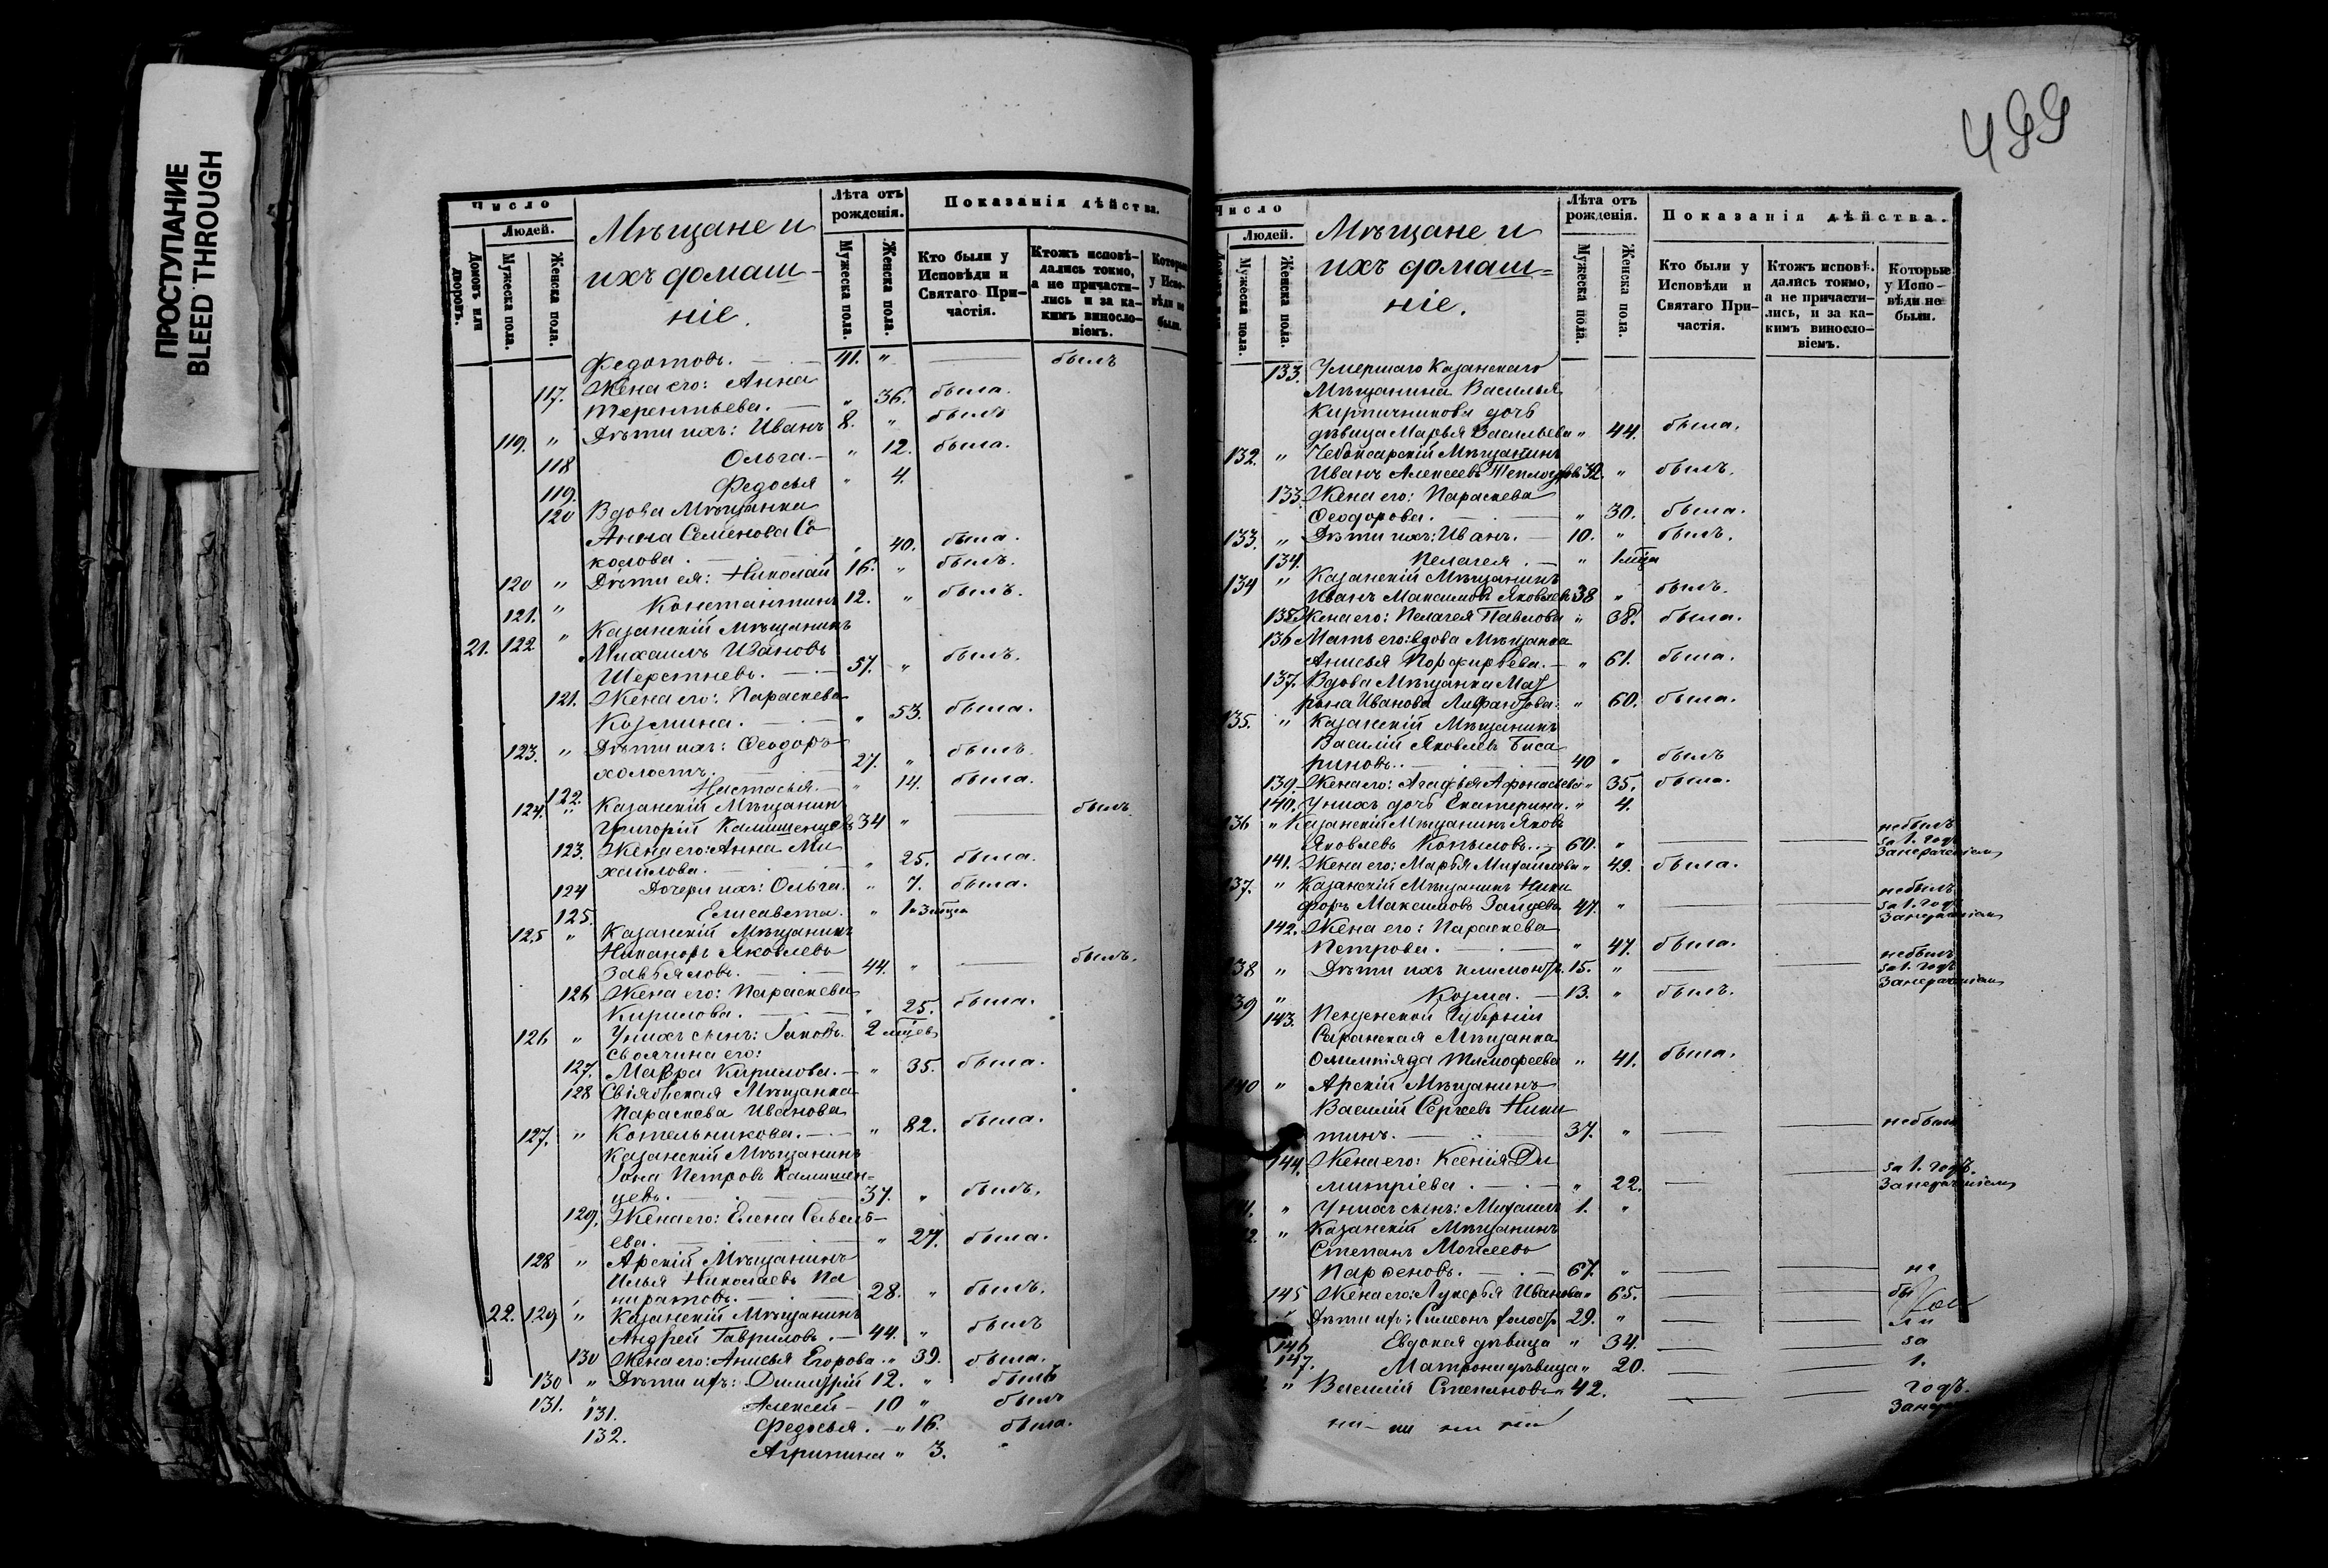 ПРОСТУПАНИЕ
BLEED THROUGH
Число
Людей.
Домовъ или дворовъ.
Мужеска пола.
Женска пола.
Мѣщане и
ихъ домаш-
ніе.
Лѣта отъ рожденія.
Мужеска пола.
Женска пола.
Показанія дѣйства.
Кто были у Исповѣди и Святаго Причастія.
Ктожъ исповѣдались токмо, а не причастились и за какимъ винословіемъ.
Которые у Исповѣди не были.
Федотовъ. 41. " — былъ
117. Жена его: Анна
Терентьева. " 36. была.
119. " Дѣти ихъ: Иванъ 8. " былъ
118 Ольга. " 12. была.
119. Федосья " 4.
120 Вдова Мѣщанка
Анна Семенова Со
колова. " 40. была.
120 " Дѣти ея: Николай 16. " былъ.
121. " Константинъ 12. " былъ.
21. 122 " Казанскій Мѣщанинъ
Михаилъ Ивановъ
Шерстневъ. 57. " былъ.
121. Жена его: Параскева
Козмина. " 53. была.
123. " Дѣти ихъ: Ѳеодоръ
холостъ. 27. " былъ
122. Настасья. " 14. была.
124. " Казанскій Мѣщанинъ
Григорій Камишенцевъ 34 " — былъ
123. Жена его: Анна Ми
хайлова. " 25. была.
124 Дочери ихъ: Ольга. " 7. была.
125. Елисавета. "
125 " Казанскій Мѣщанинъ
Никаноръ Яковлевъ
Завьяловъ. 44. " — былъ.
126 Жена его: Параскева
Кирилова. " 25. была.
126 " У нихъ сынъ: Іаковъ. 2 мѣсцев
Своячина его:
127. Мавра Кирилова. " 35. была.
128 Свіяжская Мѣщанка
Параскева Иванова
127. " Котельникова. " 82. была.
Казанскій Мѣщанинъ
Іона Петровъ Камишен=
цевъ. 37. " былъ.
129. Жена его: Елена Савель-
ева. " 27. была.
128 " Арскій Мѣщанинъ
Илья Николаевъ Па
ниратовъ. 28. " былъ.
22. 129 " Казанскій Мѣщанинъ
Андрей Гавриловъ. 44. " былъ
130 Жена его: Анисья Егорова. " 39. была.
130 " Дѣти ихъ: Димитрій 12. " былъ
131. " Алексей 10 " былъ
131. Федосья. " 16. была.
132. Агрипина " 3.
499
Число
Людей.
Мужеска пола.
Женска пола.
Мѣщане и
ихъ домаш=
ніе.
Лѣта отъ рожденія.
Мужеска пола.
Женска пола.
Показанія дѣйства.
Кто были у Исповѣди и Святаго Причастія.
Ктожъ исповѣдались токмо, а не причастились, и за какимъ винословіемъ.
Которые у Исповѣди не были.
133. Умершаго Казанскаго
Мѣщанина Василья
Кирпичникова дочь
дѣвица Марья Васильева " 44. была.
132. " Чебоксарскій Мѣщанинъ
Иванъ Алексеевъ 32. " былъ.
133. Жена его: Параскева
Ѳеодорова. " 30. была.
133. " Дѣти ихъ: Иванъ. 10. " былъ.
134. Пелагея. " 1 мѣсца
134 " Казанскій Мѣщанинъ
Иванъ Максимовъ Яковлевъ 38 " былъ.
135 Жена его: Пелагея Павлова " 38. была.
136 Мать его: вдова Мѣщанка
Анисья Порфирьева. " 61. была.
137. Вдова Мѣщанка Мат
рона Иванова " 60. была.
135. " Казанскій Мѣщанинъ
Василій Яковлевъ Биса
риновъ. 40 " былъ
139. Жена его: Агафья Афонасьева " 35. была.
140. У нихъ дочь Екатерина. " 4.
136 " Казанскій Мѣщанинъ Яковъ
Яковлевъ Копыловъ. 60. " — — небылъ за 1. годъ
141. Жена его: Марья Михайлова " 49. была.
137. " Казанскій Мѣщанинъ Ники
форъ Максимовъ Зайцевъ 47. " — — небылъ за 1. годъ
142. Жена его: Параскева
Петрова. " 47. была.
138 " Дѣти ихъ 15. " — — небылъ за 1. годъ
139 " Козма. 13. " былъ.
143. Пензенской Губерніи
Саранская Мѣщанка
Олимпіяда Тимофеева " 41. была.
140 " Арскій Мѣщанинъ
Василій Сергеевъ Ники
тинъ. 37. " — — небылъ
144. Жена его: Ксенія Ди
митріева. " 22. — — за 1. годъ.
" У нихъ сынъ: Михаилъ 1. "
" Казанскій Мѣщанинъ
Степанъ Моисеевъ
Парѳеновъ. 67. " — — не
145 Жена его: Лукерья Иванова " 65. — — бы
Дѣти ихъ: Симеонъ холостъ 29. " — — ли
146 Евдокия дѣвица " 34. — — за
147. Матрона дѣвица " 20. — — 1.
" Василій Степановъ 42. — — годъ.